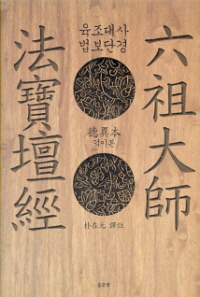 육조대사
법보단경
六祖大師
法寶壇經
德異本
덕이본
朴在元 譯註